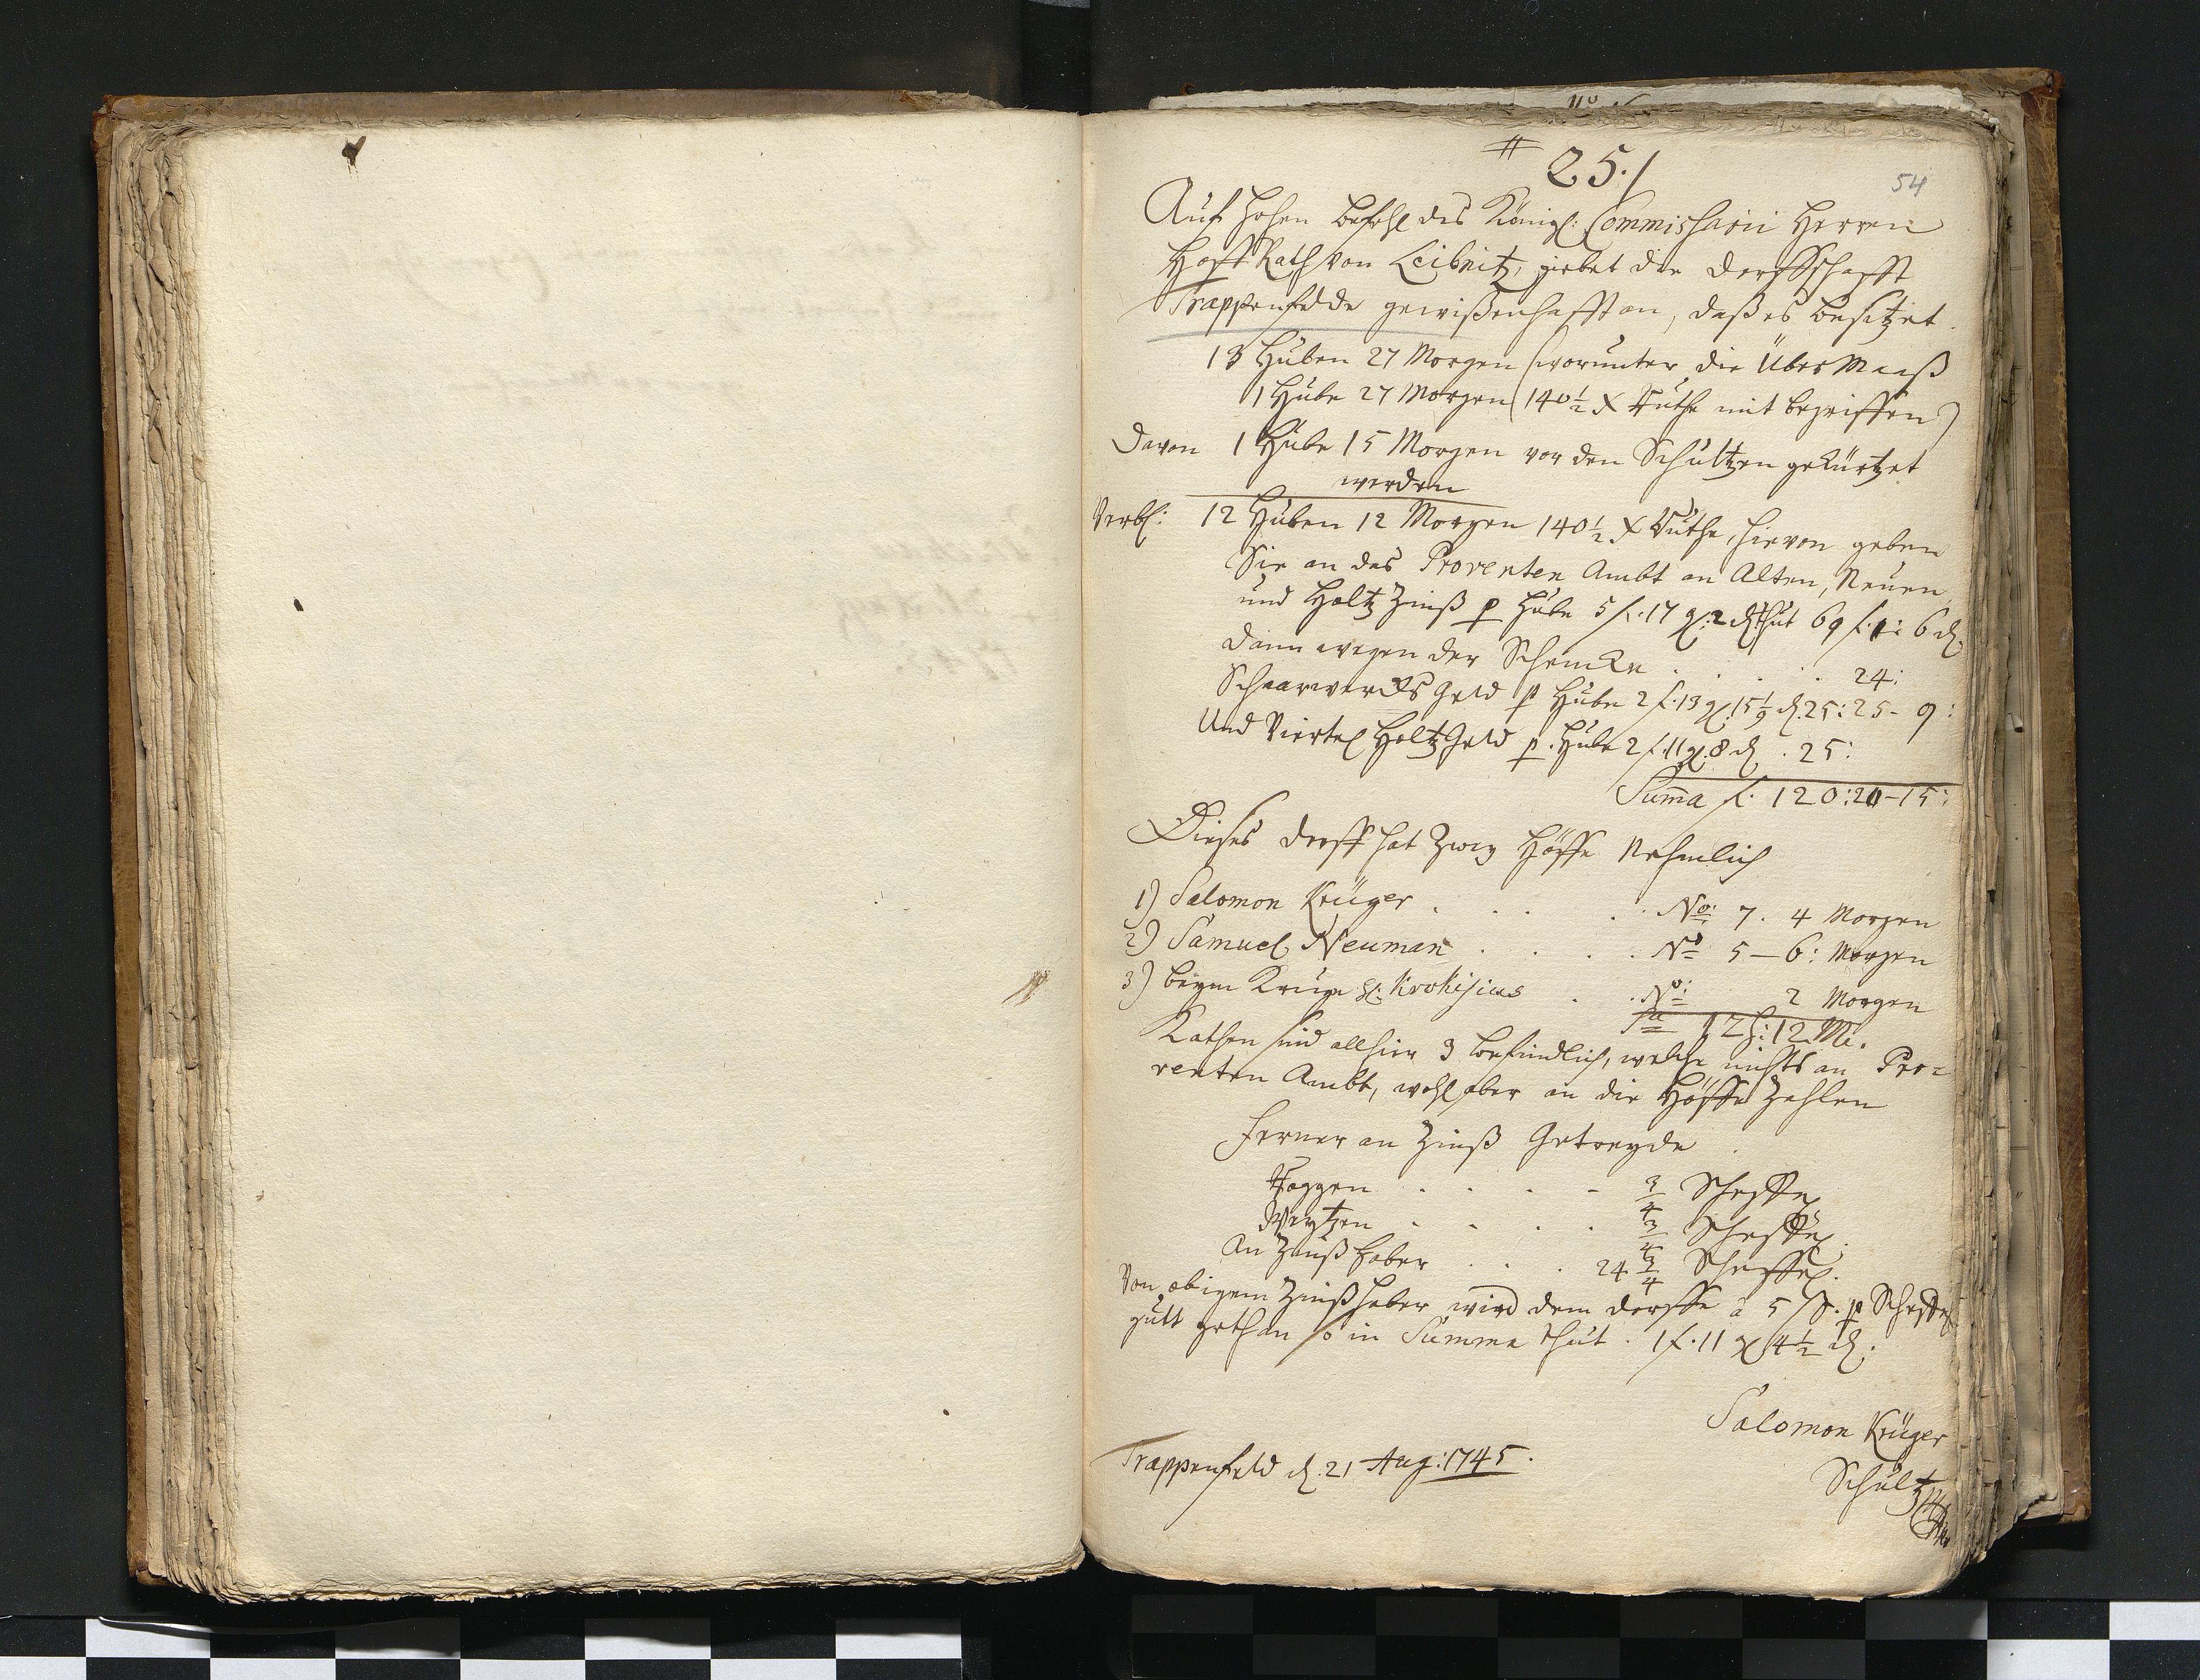 25.
54
Auf hohen Befehl des Königl: Commissarii Herren
Hoff Rath von Leibnitz, giebet die Dorffschafft
Trappenfelde gewißenhafft an, daß es besitzet
13 Huben 27 Morgen (worunter die Über Maaß
1 Hube 27 Morgen 140½ X Ruthe mit begriffen)
Davon 1 Hube 15 Morgen vor den Schultzen gekürtzet
werden
Verbl: 12 Huben 12 Morgen 140½ X Ruthe, hievon geben
Sie an das Proventen Ambt an Alten, Neuen
und Holtz Zinß p Hube 5 f. 17 g: 2 d thut 69 f. 1: 6 d.
Dann wegen der Schencke . . . 24:
Schaarwercks Geld p Hube 2 f. 13 g. 15 1/9 d. 25: 25 - 9:
Und Viertel Holtz Geld p. Hube 2 f. 11 g. 8 d . 25:
Suma f. 120: 20 - 15:
Dieses Dorff hat Zwey Höffe Nehmlich
1) Salomon Krüger . . . . No: 7. 4 Morgen
2) Samuel Neuman . . . . No 5 — 6: Morgen
3) beym Kruge H: Krokisius . . No: 2 Morgen
Sa 12 H: 12 M.
Kathen sind allhier 3 befindlich, welche nichts an Pro=
venten Ambt, wohl aber an die Höffe Zahlen
Ferner an Zinß Getreyde
Roggen . . . - ¾ Scheffel
Weytzen . . . . ¾ Scheffel.
An Zinß Haber . . . 24 ¾ Scheffel.
Von obigem Zinßhaber wird dem Dorffe a 5 ß. p Scheffel
gutt gethan so in Summa thut . 1 f. 11 g 4½ d.
Salomon Krüger
Schultz
Trappenfeld d. 21 Aug: 1745.